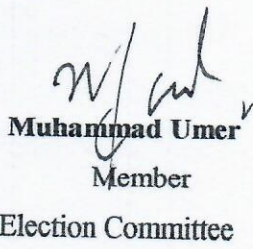 Muhammad Umer
Member
Election Committee